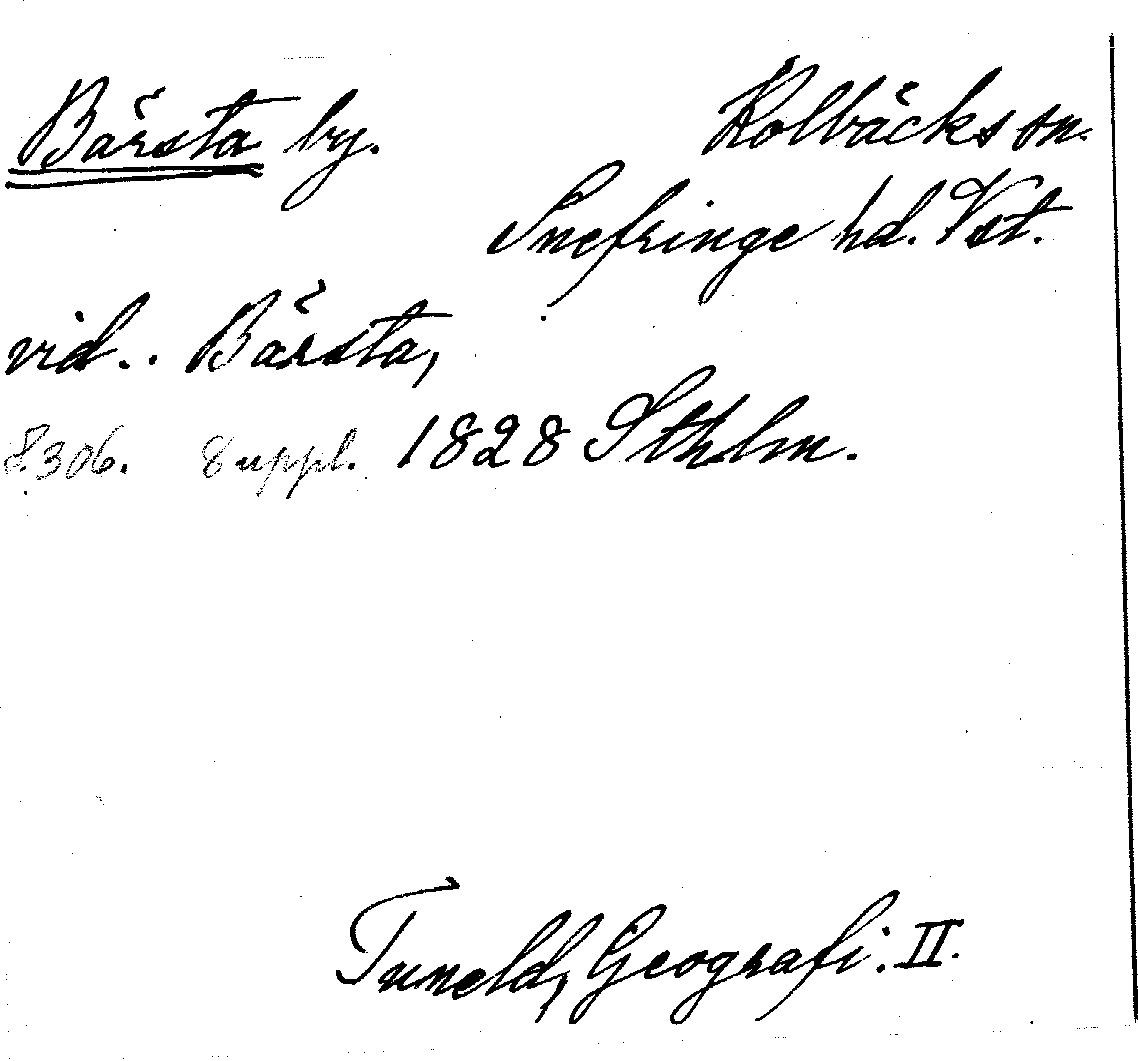 Bärsta by. Kolbäcks sn.
Snefringe hd. Vst.
vid.. Bärsta,
S. 306. 8 uppl. 1828 Sthlm.
Tuneld, Geografi. II.